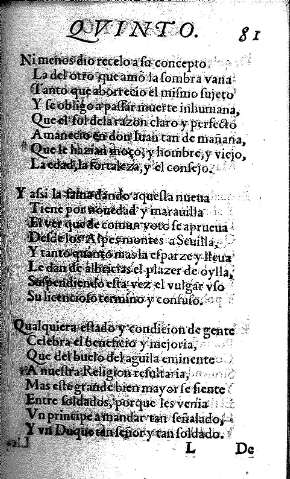 QVINTO. 81
Ni menos dio recelo a su concepto
La del otro que amó la sombra vana
Tanto que aborrecio el mismo sujeto
Y se obligo a passar muerte inhumana,
Que el sol de la razon claro y perfecto
Amanecio en don Iuan tan de mañana,
Que le hazian moço, y hombre, y viejo,
La edad, la fortaleza, y el consejo.
Y assi la fama dando aquesta nueua
Tiene por nouedad y marauilla
El ver que de comun voto se aprueua
Desde los Alpes montes a Seuilla,
Y tanto quanto mas la esparze y lleua
Le dan de albricias el plazer de oylla,
Suspendiendo esta vez el vulgar vso
Su licencioso termino y confuso.
Qualquiera estado y condicion de gente
Celebra el beneficio y mejoria,
Que del buelo del aguila eminente
A nuestra Religion resultaria,
Mas este grande bien mayor se siente
Entre soldados, porque les venia
Vn principe a mandar tan señalado,
Y vn Duque tan señor y tan soldado.
L De